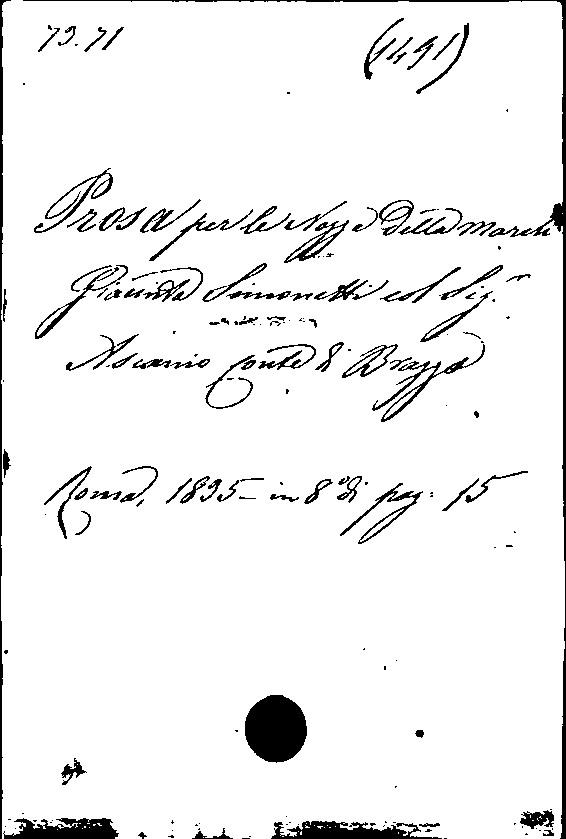 79.71 (1491)
Prosa per le Nozze della March
Giacinta Simonetti col Sig.r
Ascanio Conte di Brazzà
Roma, 1835 - in 8° di pag. 15